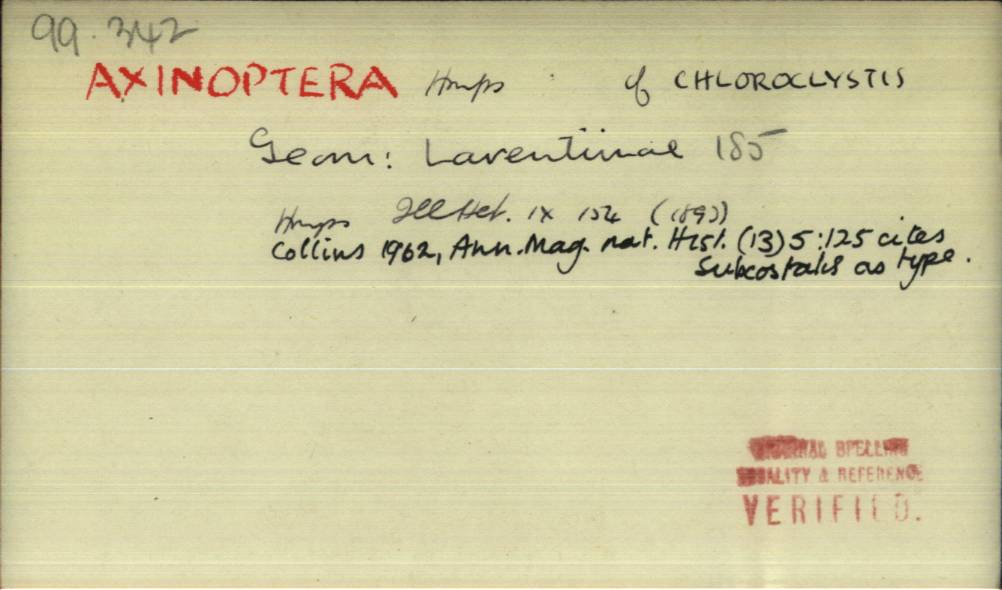 99.342
AXINOPTERA Hmps of CHLOROCLYSTIS
Geom: Larentiinae 185
Hmps Ill Het. IX 154 (1893)
Collins 1962, Ann. Mag. nat. Hist. (13) 5:125 cites
Subcostalis as type.
SPELLING
& REFERENCE
VERIFIED.